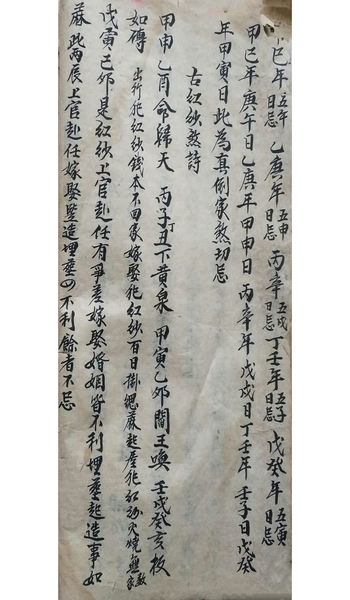 己年五午日忌乙庚年五申日忌丙辛年五戌日忌丁壬年五子日忌戊癸年五寅日忌
甲己年庚午日乙庚年甲申日丙辛年戊戌日丁壬年壬子日戊癸
年甲寅日此為真倒家煞切忌
古紅紗煞詩
甲申乙酉命歸天丙子丁丑下黄泉甲寅乙卯閻王喚壬戌癸亥板
如磚出行犯紅紗錢本不回家嫁娶犯紅紗百日掛緦蔴起屋犯紅紗火燒無家
戊寅己卯是紅紗上官赴任有爭差嫁娶婚姻皆不利埋塟起造事如
蔴此丙辰上官赴任嫁娶豎造埋塟不利餘者不忌